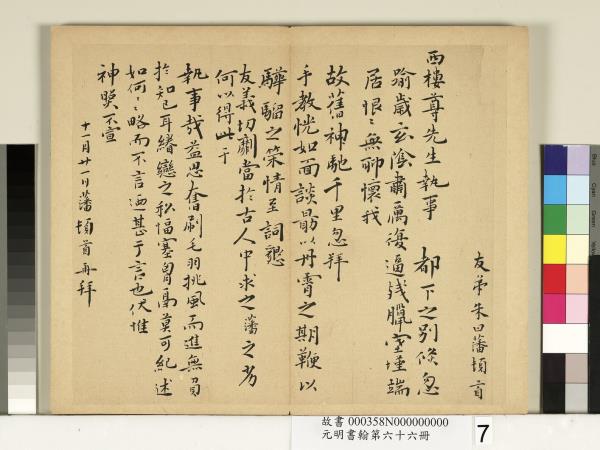 友弟朱曰藩頓首
西樓尊先生執事 都下之別倏忽
踰歲玄陰肅厲復逼殘臘室堙端
居恨〻無聊懷我
故舊神馳千里忽拜
手教恍如面談勗以丹霄之期鞭以
驊騮之策情至詞懇
友義切劘當於古人中求之藩之劣
何以得此于
執事哉益思奮刷毛羽挑風而進無負
於知己耳繾戀之私愊塞胷鬲莫可紀述
如何〻略而不言迺甚于言也伏惟
神照不宣
十一月廿一日藩頓首再拜
故書 000358N000000000
元明書翰第六十六冊
7